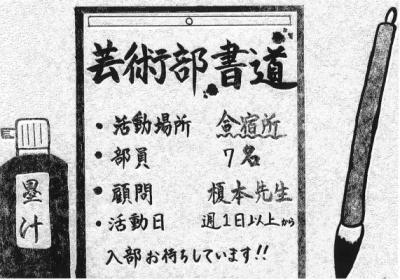 芸術部書道
・活動場所 合宿所
・部員 7名
・顧問 榎本先生
・活動日 週1日以上から
入部お待ちしています!!
墨汁